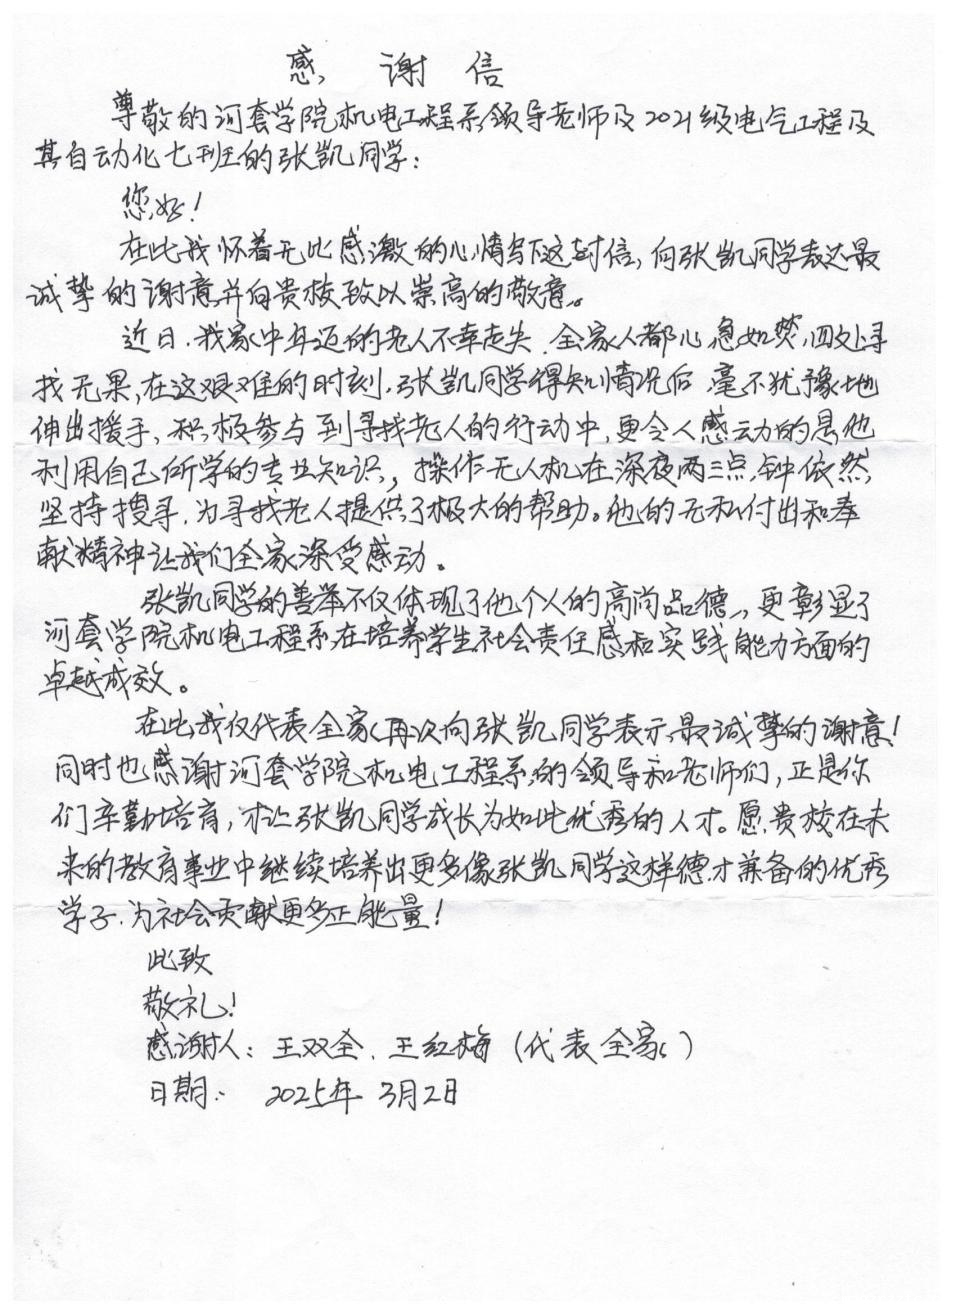 感谢信
尊敬的河套学院机电工程系领导老师及2021级电气工程及
其自动化七班的张凯同学:
您好!
在此我怀着无比感激的心情写下这封信,向张凯同学表达最
诚挚的谢意并向贵校致以崇高的敬意。
近日.我家中年迈的老人不幸走失.全家人都心急如焚,四处寻
找无果,在这艰难的时刻,张凯同学得知情况后毫不犹豫地
伸出援手,积极参与到寻找老人的行动中,更令人感动的是他
利用自己所学的专业知识,操作无人机在深夜两三点钟依然
坚持搜寻.为寻找老人提供了极大的帮助。他的无私付出和奉
献精神让我们全家深受感动。
张凯同学的善举不仅体现了他个人的高尚品德,更彰显了
河套学院机电工程系在培养学生社会责任感和实践能力方面的
卓越成效。
在此我仅代表全家再次向张凯同学表示最诚挚的谢意!
同时也感谢河套学院机电工程系的领导和老师们,正是你
们辛勤培育,才让张凯同学成长为如此优秀的人才。愿贵校在未
来的教育事业中继续培养出更多像张凯同学这样德才兼备的优秀
学子.为社会贡献更多正能量!
此致
敬礼!
感谢人:王双全.王红梅(代表全家)
日期: 2025年3月2日